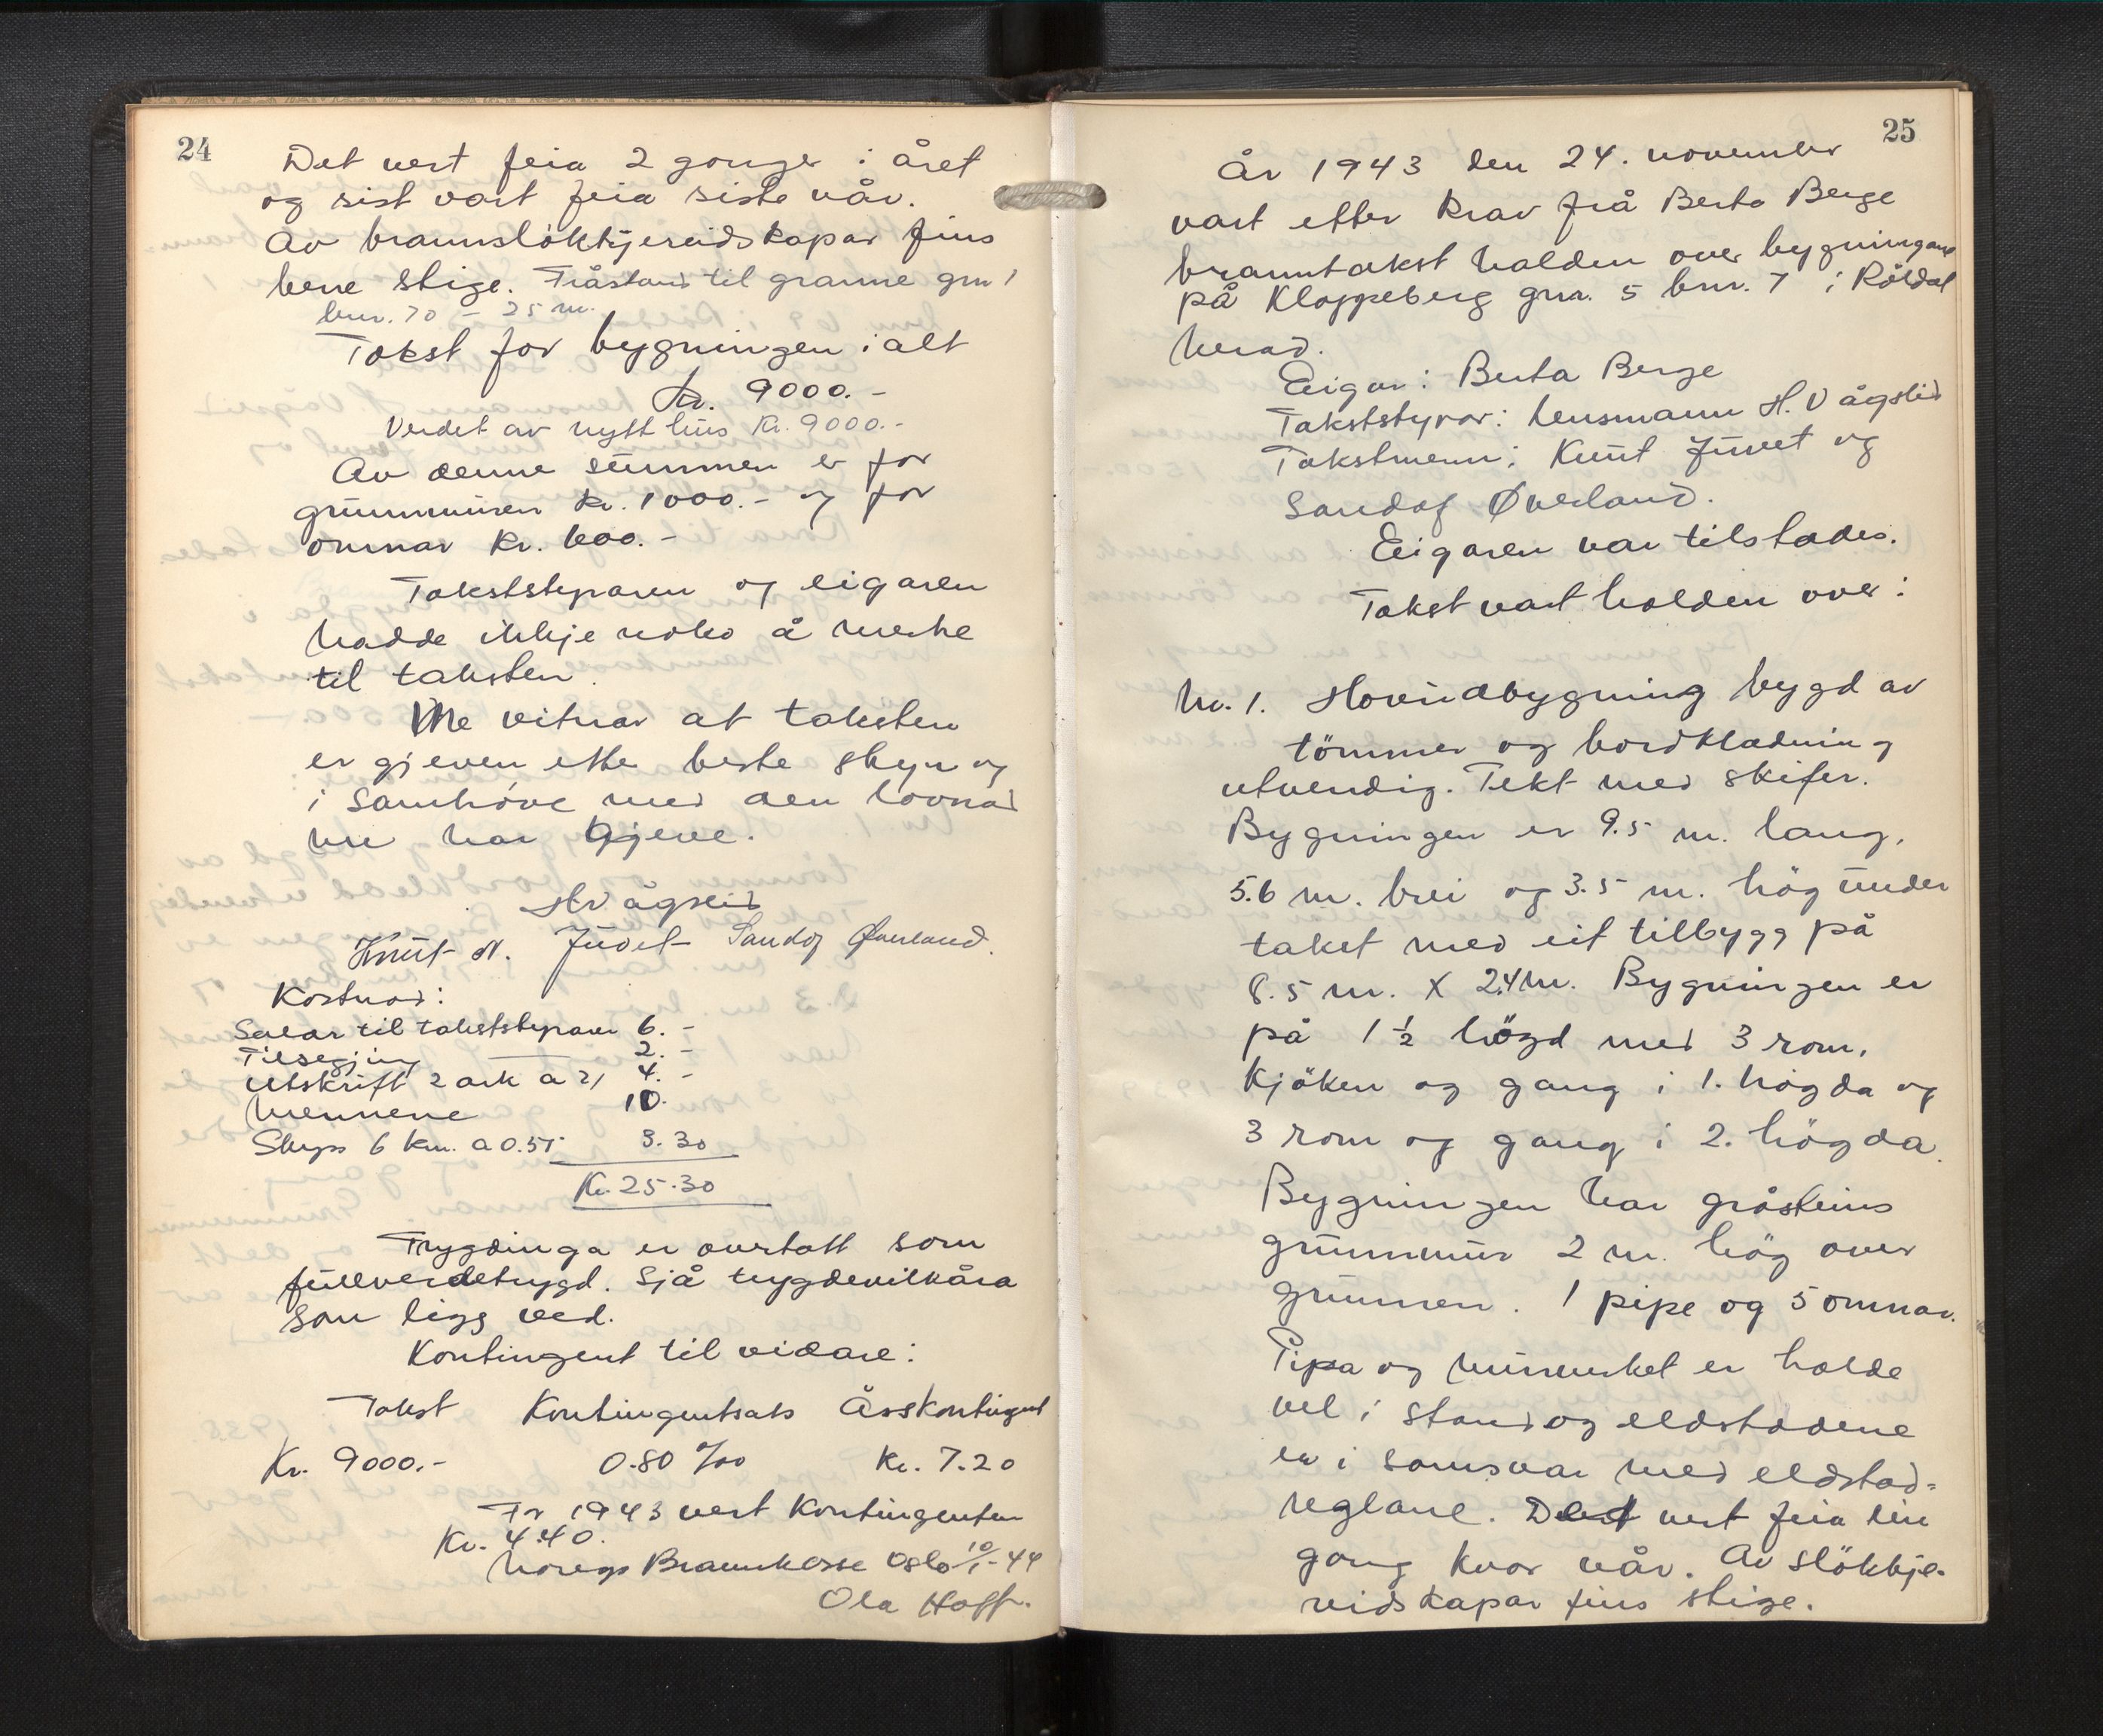 24
Det vert feia 2 gonger i året
og sist vart feia siste vår.
Av brannslökkjereidskapar fins
bere stige. Fråstand til granne gnr 1
bnr. 70 - 25 m.
Takst for bygningen i alt
Kr. 9000.-
Verdet av nytt hus Kr. 9000.-
Av denne summen er for
grunnmuren kr. 1000.- og for
omnar kr. 600.-
Takststyraren og eigaren
hadde ikkje noko å merke
til taksten.
Me vitnar at taksten
er gjeven etter beste skyn og
i samhöve med den lovnad
me har gjeve.
HVågslid
Knut N. Juvet Sandof Øverland.
Kostnad:
Salar til takststyraren 6.-
Tilsegjing — 2.-
Utskrift 2 ark a 2/ 4.-
Mennene 10.
Skyss 6 km. a 0.55 3.30
Kr. 25.30
Trygdinga er overtatt som
fullverdetrygd. Sjå trygdevilkåra
som ligg ved.
Kontingent til vidare:
Takst Kontingentsats Årskontingent
Kr. 9000.- 0.80 ‰ Kr. 7.20
For 1943 vert Kontingenten
Kr. 4.40.
Noregs Brannkasse Oslo 10/1-44
Ola Hoff.
25
År 1943 den 24. november
vart etter krav frå Berta Berge
branntakst halden over bygningane
på Kloppeberg gnr. 5 bnr. 7 i Röldal
herad.
Eigar: Berta Berge
Takststyrar: Lensmann H. Vågslid
Takstmenn: Knut Juvet og
Sandof Øverland.
Eigaren var tilstades.
Takst vart halden over:
Nr. 1. Hovudbygning bygd av
tömmer og bordkledning
utvendig. Tekt med skifer.
Bygningen er 9.5 m. lang,
5.6 m. brei og 3.5 m. hög under
taket med eit tilbygg på
8.5 m. X 2.4 m. Bygningen er
på 1 1/2 högd med 3 rom,
kjöken og gang i 1. högda og
3 rom og gang i 2. högda.
Bygningen har gråsteins
grunnmur 2 m. hög over
grunnen. 1 pipe og 5 omnar.
Pipa og murverket er halde
vel i stand og eldstadene
er i samsvar med eldstad=
reglane. Det vert feia ein
gong kvar vår. Av slökkje-
reidskapar fins stige.